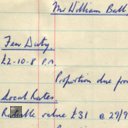 Mr William Ball
Feu Duty
£2-10-8 p.a.
Proportion due from
Local Rates
Rateable value £31 @ 29/9